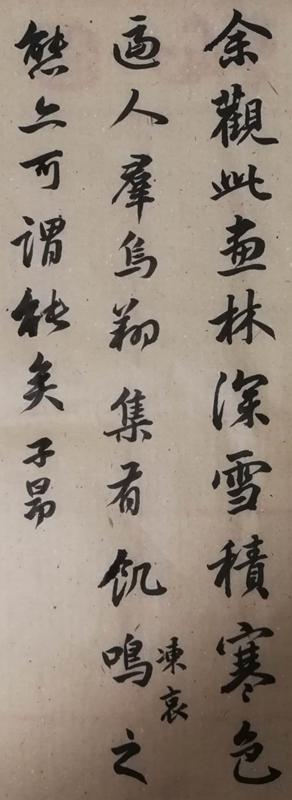 余觀此畫林深雪積寒色
逼人羣烏翔集有飢鳴之
凍哀
態亦可謂能矣子昂